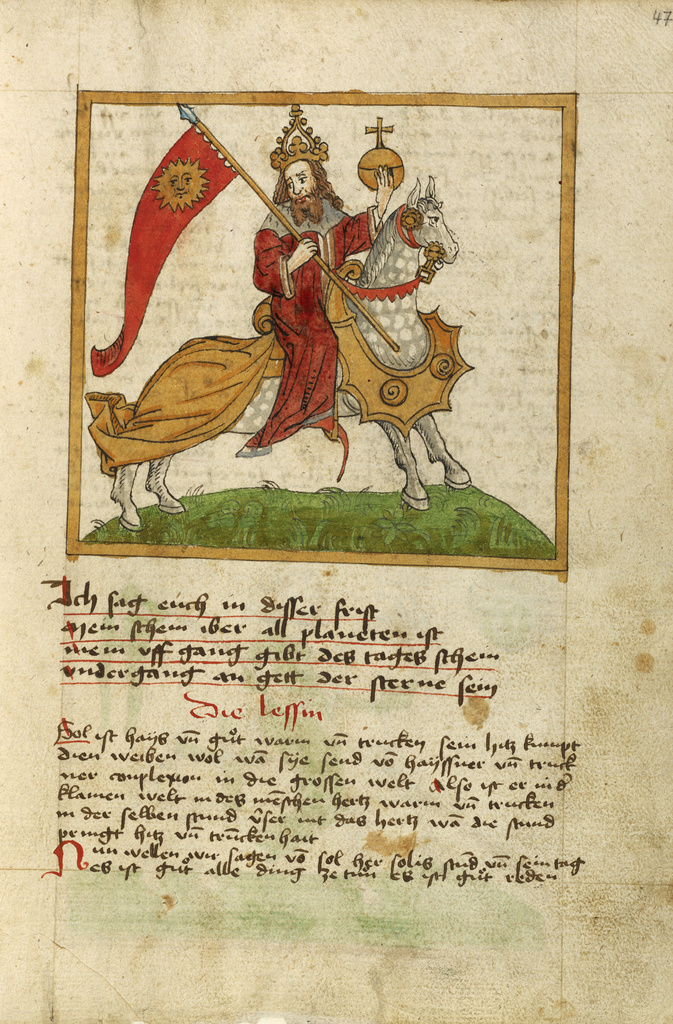 47
Ich sag euch in disser frist
mein schein iber all planeten ist
mein uff gang gibt des tages schein
undergang an gett der sterne sein
Die lessin
Sol ist hays vn̄ gůt warm vn̄ trucken sein hitz kumpt
den weiben wol wā sye send vō hayssner vn̄ truck
ner conplexion in die grossen welt Also ist er in dͤ
klainen welt in des mēschen hertz warm vn̄ trucken
in der selben stund user int das hertz wā die stund
pringt hitz vn̄ trucken hait
Nun wellen wir sagen vō sol her solis stund vn̄ sein tag
es ist gůt alle ding ze tůn es ist gůt reden